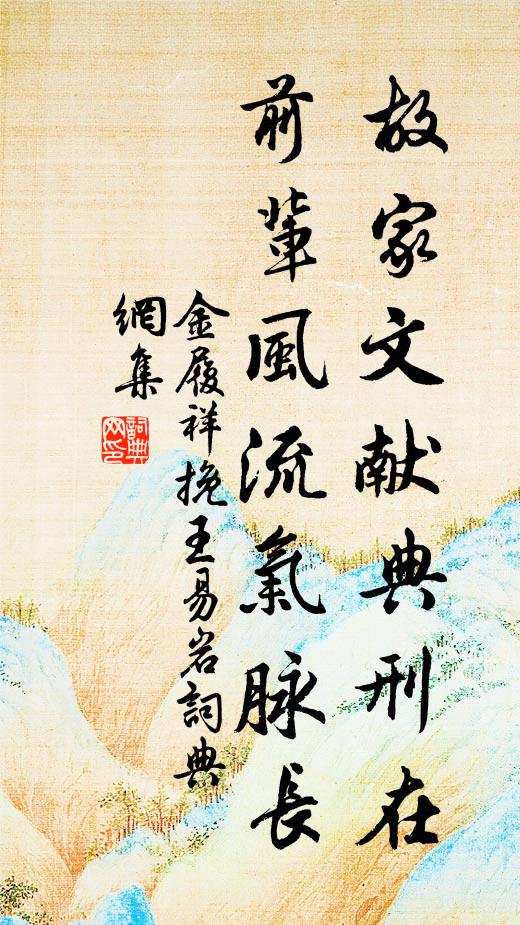 故家文献典刑在
前輩風流氣脉長
金履祥挽王易岩詞典
網集
詞典網印